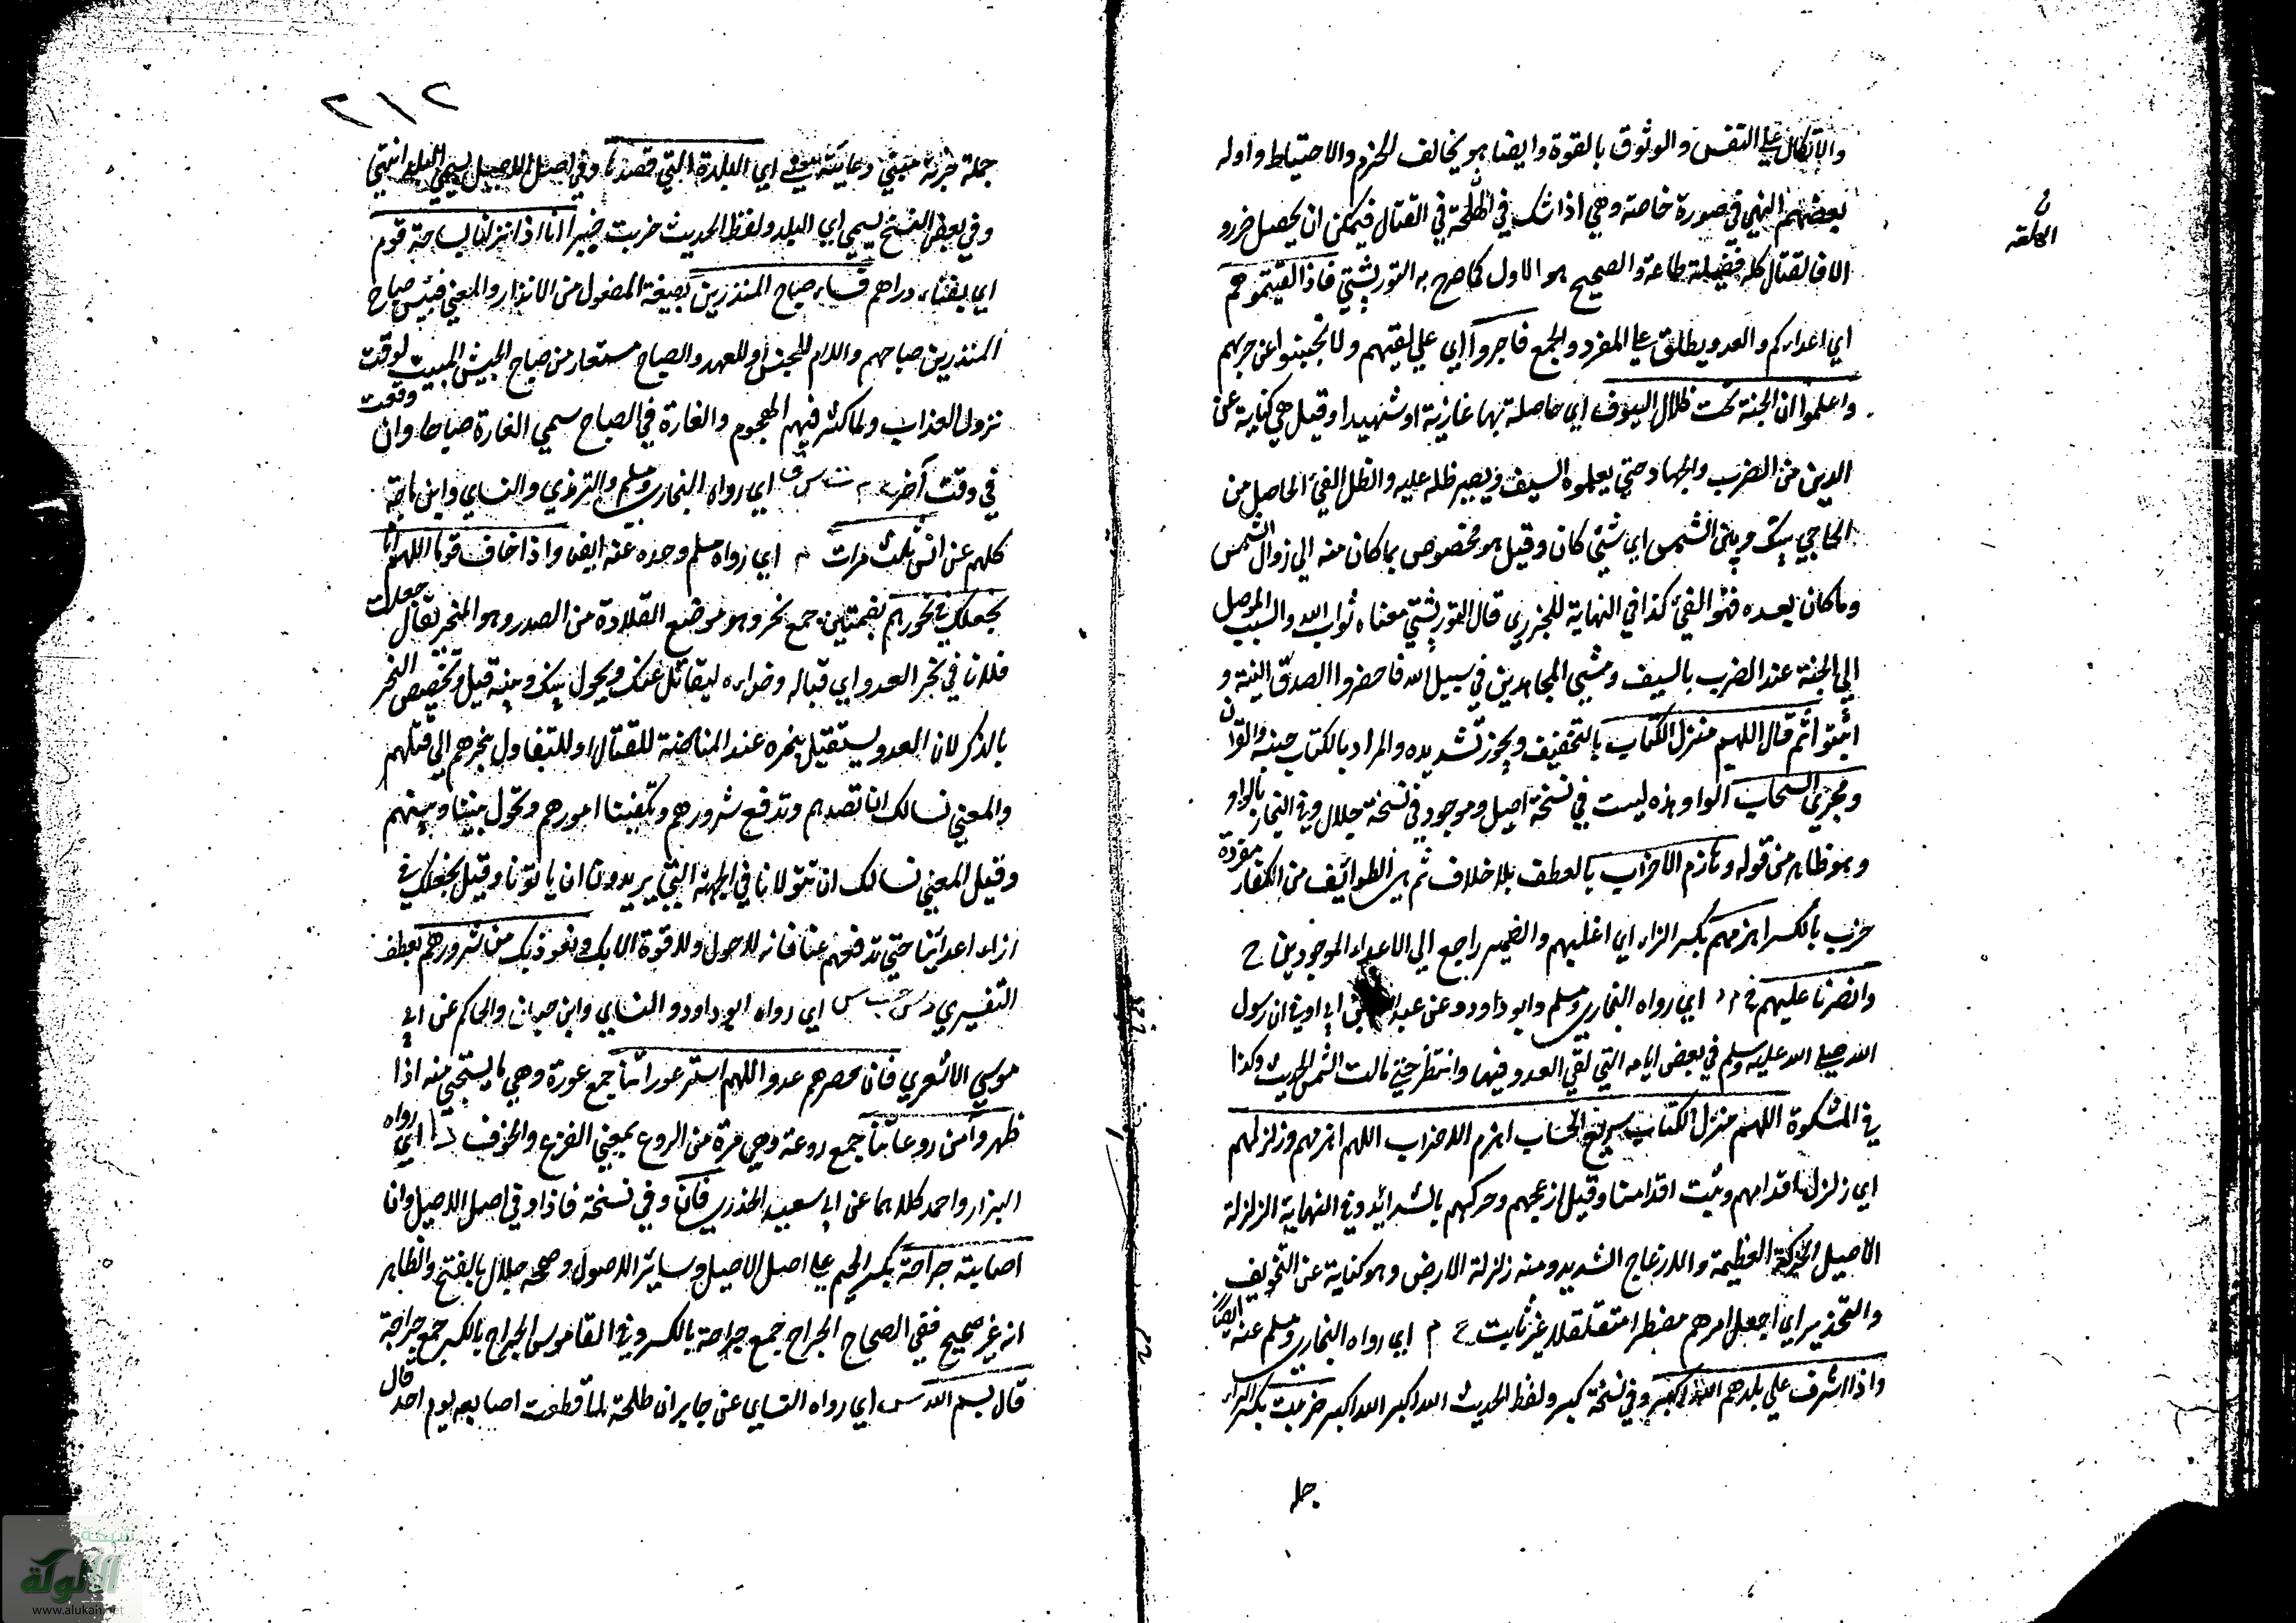 والاتكال علي النفس والوثوق بالقوة وايضا هو يخالف الحزم والاحتياط واوله
بعضهم النهي في صورة خاصة وهي اذا شك في المصلحة في القتال فيمكن ان يحصل ضرر
الا فالقتال كله فضيلة طاعة والصحيح هو الاول كما صرح به التوربشتي فاذا لقيتموهم
اي اعداءكم والعدو يطلق علي المفرد والجمع فاصبروا اي علي لقيهم ولا تجبنوا عن حربهم
واعلموا ان الجنة تحت ظلال السيوف اي حاصلة بها غازية او شهيدا وقيل هي كناية عن
الدين من الضرب والجهاد حتي يعلوه السيف ويصير ظله عليه والظل الفئ الحاصل من
الحاجي بينك وبين الشمس اي شئي كان وقيل هو مخصوص بما كان منه الي زوال الشمس
وما كان بعده فهو الفئ كذا في النهاية للجزري قال التوربشتي معناه ثواب الله والسبب الموصل
الي الجنة عند الضرب بالسيف ومشي المجاهدين في سبيل الله فاحضروا الصدق النية و
اثبتوا ثم قال اللهم منزل الكتاب بالتخفيف ويجوز تشديده والمراد بالكتاب جنسه والقرآن
ومجري السحاب الواو هذه ليست في نسخة اصيل وموجود في نسخة جلال وفي البخاري بالواو
وهو ظاهر من قوله وهازم الاحزاب بالعطف بلا خلاف ثم هي الطوائف من الكفار مفردة
حزب بالكسر اهزمهم بكسر الزاء اي اغلبهم والضمير راجع الي الاعداء الموجودين ح
وانصرنا عليهم خ م د اي رواه البخاري ومسلم وابو داود وعن عبد الله بن ابي اوفي ان رسول
الله صلي الله عليه وسلم في بعض ايامه التي لقي العدو فيها وانتظر حتي مالت الشمس الحديث وكذا
في المشكوة اللهم منزل الكتاب سريع الحساب اهزم الاحزاب اللهم اهزمهم وزلزلهم
اي زلزل اقدامهم وثبت اقدامنا وقيل ازعجهم وحركهم بالشدائد وفي النهاية الزلزلة
الاصيل الحركة العظيمة والازعاج الشديد ومنه زلزلة الارض وهو كناية عن التخويف
والتحذير اي اجعل امرهم مضطرا متقلقلا غير ثابت خ م اي رواه البخاري ومسلم عنه ايضا
واذا اشرف علي بلدهم الله اكبر وفي نسخة كبر ولفظ الحديث الله اكبر الله اكبر خربت بكسر الراء
جملة
٢١٢
جملة خبرية مبني دعائية معني اي البلدة التي قصدها وفي اصل الاصيل يسمي البلد انتهي
وفي بعض النسخ يسمي اي البلد ولفظ الحديث خربت خيبر انا اذا نزلنا بساحة قوم
اي بفناء دراهم فساء صباح المنذرين بصيغة المفعول من الانذار والمعني فبئس صباح
المنذرين صباحهم واللام للجنس او للعهد والصباح مستعار من صباح الجيش المبيت لوقت
نزول العذاب ولما كثر فيهم الهجوم والغارة في الصباح سمي الغارة صباحا وان وقعت
في وقت آخر خ م ت س ق اي رواه البخاري ومسلم والترمذي والنسائي وابن ماجة
كلهم عن انس ثلث مرات م اي رواه مسلم وحده عنه ايضا واذا خاف قوما اللهم انا
نجعلك في نحورهم بضمتين جمع نحر وهو موضع القلادة من الصدر وهو المنحر يقال جعلت
فلانا في نحر العدو اي قباله وضراءه ليقاتل عنك ويحول بينك وبينه قيل وتخصيص النحر
بالذكر لان العدو يستقبل بنحره عند المناهضة للقتال او للتفاول بنحرهم الي قتلهم
والمعني نسالك ان تصدهم وتدفع شرورهم وتكفينا امورهم وتحول بيننا وبينهم
وقيل المعني نسالك ان تتولانا في الجهة التي يريدون ان ياتونا وقيل نجعلك في
ازاء اعدائنا حتي تدفعهم عنا فانه لا حول ولا قوة الا بك ونعوذ بك من شرورهم بعطف
التفسيري د س حب مس اي رواه ابو داود والنسائي وابن حبان والحاكم عن ابي
موسي الاشعري فان حصرهم عدو اللهم استر عوراتنا جمع عورة وهي ما يستحيي منه اذا
ظهر وآمن روعاتنا جمع روعة وهي مرة من الروع بمعني الفزع والخوف را اي رواه
البزار واحمد كلاهما عن ابي سعيد الخدري فان وفي نسخة فاذا وفي اصل الاصيل وان
اصابته جراحة بكسر الجيم علي اصل الاصيل وسائر الاصول وصححه جلال بالفتح والظاهر
انه غير صحيح ففي الصحاح الجراح جمع جراحة بالكسر وفي القاموس الجراح بالكسر جمع جراحة
قال بسم الله س اي رواه النسائي عن جابر ان طلحة لما قطعت اصابعه يوم احد قال
شبكة
الألوكة
www.alukah.net